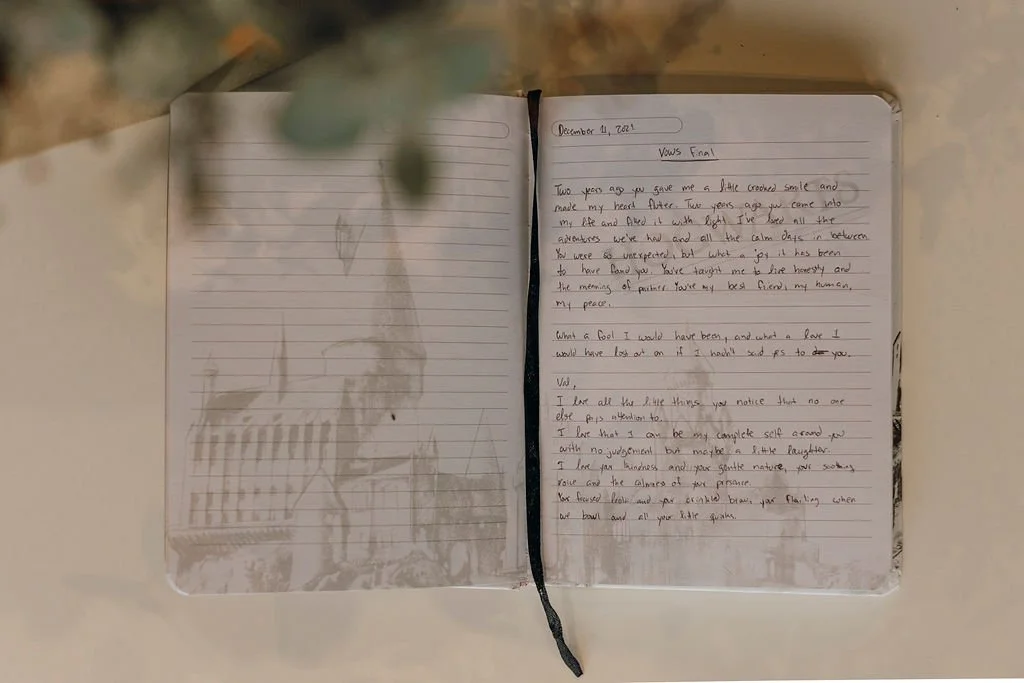 December 11, 2021
Vows Final
Two years ago you gave me a little crooked smile and
made my heart flutter. Two years ago you came into
my life and filled it with light. I've loved all the
adventures we've had and all the calm days in between.
You were so unexpected, but what a joy it has been
to have found you. You've taught me to live honestly and
the meaning of partner. You're my best friend, my human,
my peace.
What a fool I would have been, and what a love I
would have lost out on if I hadn't said yes to you.
Val,
I love all the little things you notice that no one
else pays attention to.
I love that I can be my complete self around you
with no judgement but maybe a little laughter.
I love your kindness and your gentle nature, your soothing
voice and the calmness of your presence.
Your focused and your crinkled brow, your flailing when
we bowl and all your little quirks.